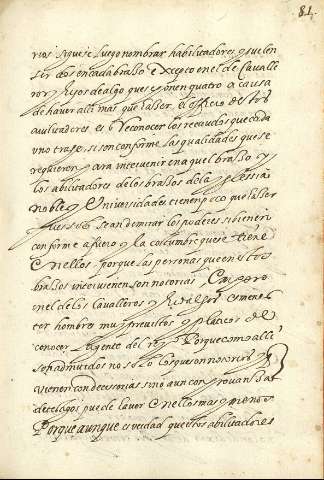 81
rios siguese luego nombrar habilitadores y suelen
ser dos en cada brasso excepto en el de Cavalle
ros y hijos dealgo que se ponen quatro a causa
de haver alli mas que hasser, el officio de los
avilitadores es Reconocer los recaudos que cada
uno trae, si son conforme las qualidades que se
requieren para intervenir en aquel brasso, y
los abilitadores de los brassos de la Iglesia
nobles y Universidades tienen poco que hasser
pues solo sean de mirar los poderes si bienen
conforme a fuero y la costumbre que se tiene
en ellos porque las personas que en estos
brassos intervienen son notorias, Pero
en el de los Cavalleros y hidalgos es menes
ter hombres muy previstos y platicos de
conocer la gente del Rey. Porque como alli
se admitidos no solo los que son notorios y
vienen con decisorias sino aun con provanssas
de testigos puede haver en ellos mas y menos
Porque aunque es verdad que estos abilitadores